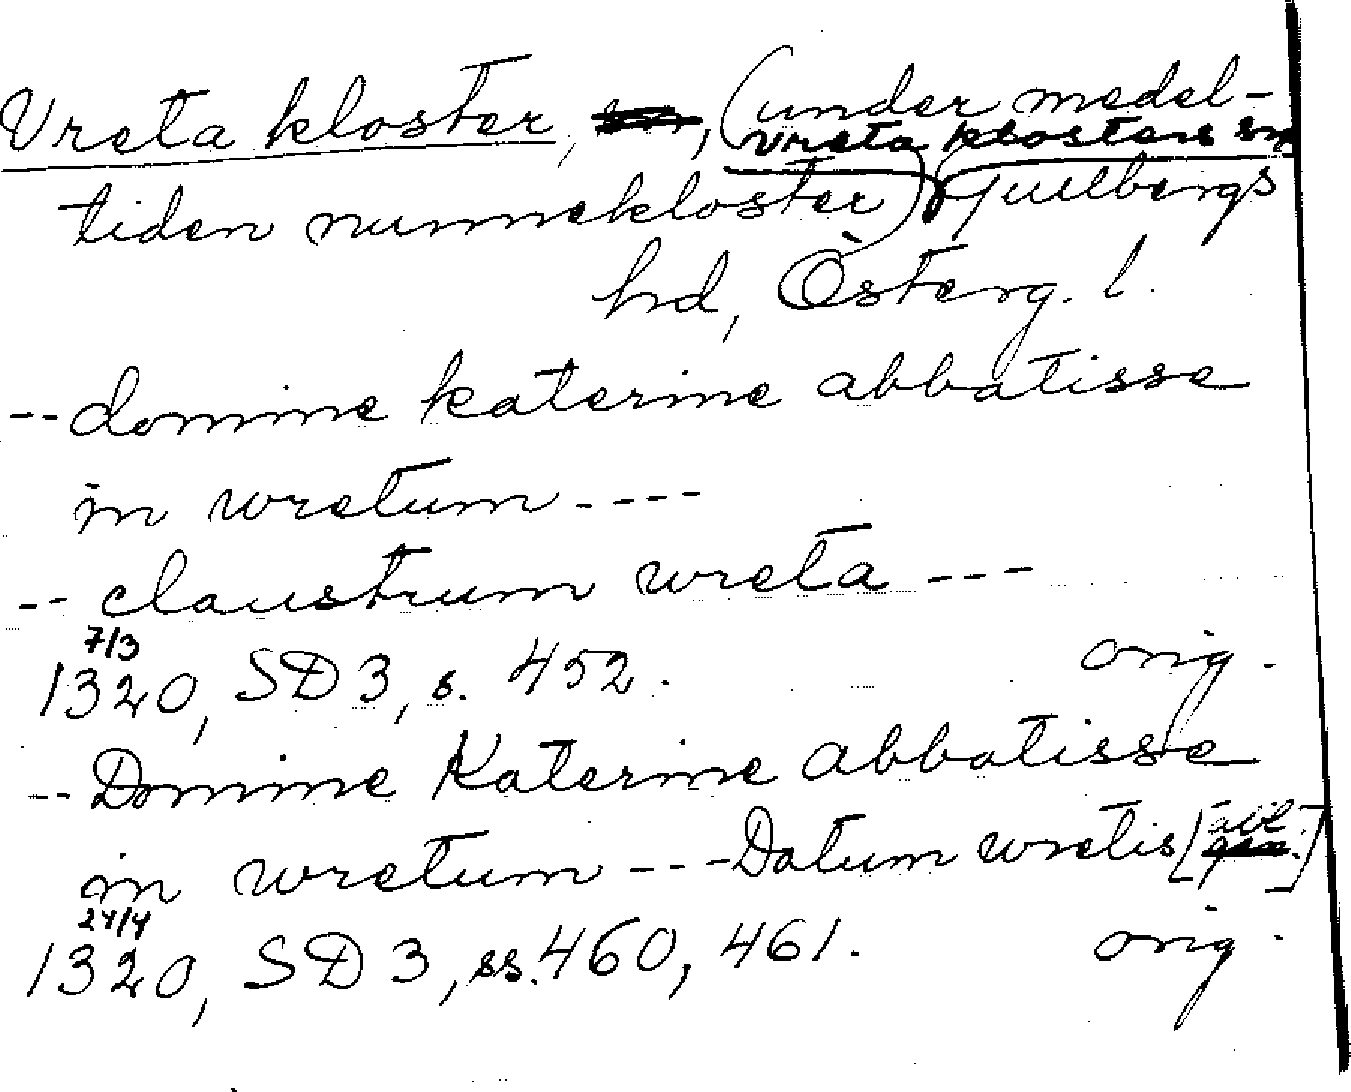 Vreta kloster, (under medel-
Vreta klosters sn
tiden nunnekloster) Gullbergs
hd, Österg. l.
-- domine katerine abbatisse
in wretum ----
-- claustrum wreta ---
7/3
1320, SD 3, s. 452. orig.
-- Domine Katerine abbatisse
in wretum --- Datum wretis [abl.]
24/4
1320, SD 3, ss. 460, 461. orig.